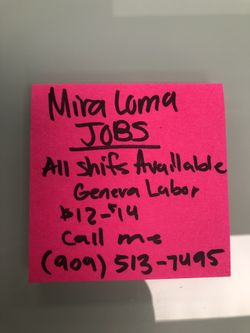 Mira Loma
JOBS
All shifs Available
Genera Labor
$12-$14
Call me
(909) 513-7495